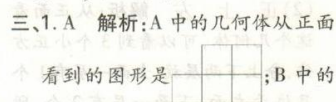 三、1. A 解析:A 中的几何体从正面
看到的图形是;B 中的